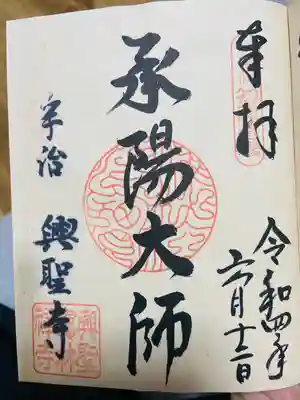 奉拝
令和四年
六月十二日
承陽大師
宇治
興聖寺